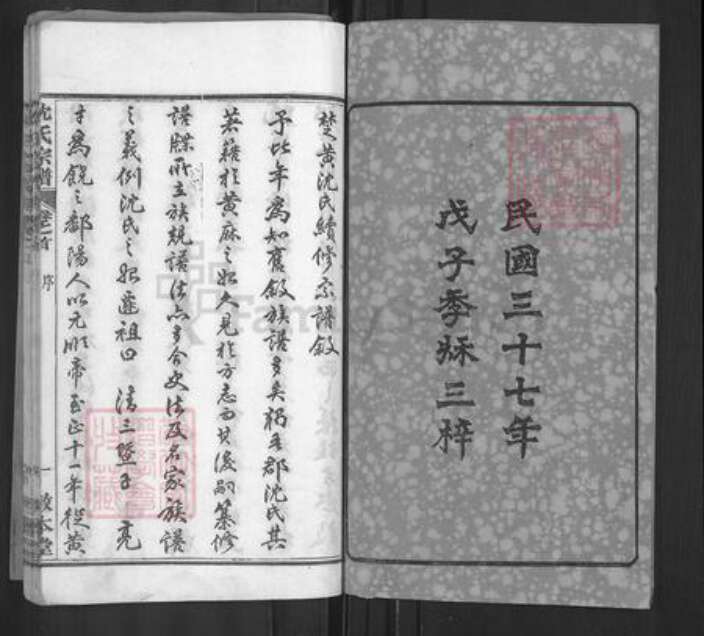 民國三十七年
戊子季秌三梓
楚黃沈氏續修宗譜敘
予比年為知舊敘族譜多矣 吾郡沈氏其
著籍於黃麻之始久見於方志而其後嗣纂修
譜牒所立族規譜法亦多合史法及名家族譜
之義例沈氏之始遷祖曰 清三 亮
士為饒之鄱陽人以元順帝至正十一年從黃
沈氏宗譜 卷之首 序 一 敦本堂
FamilySearch